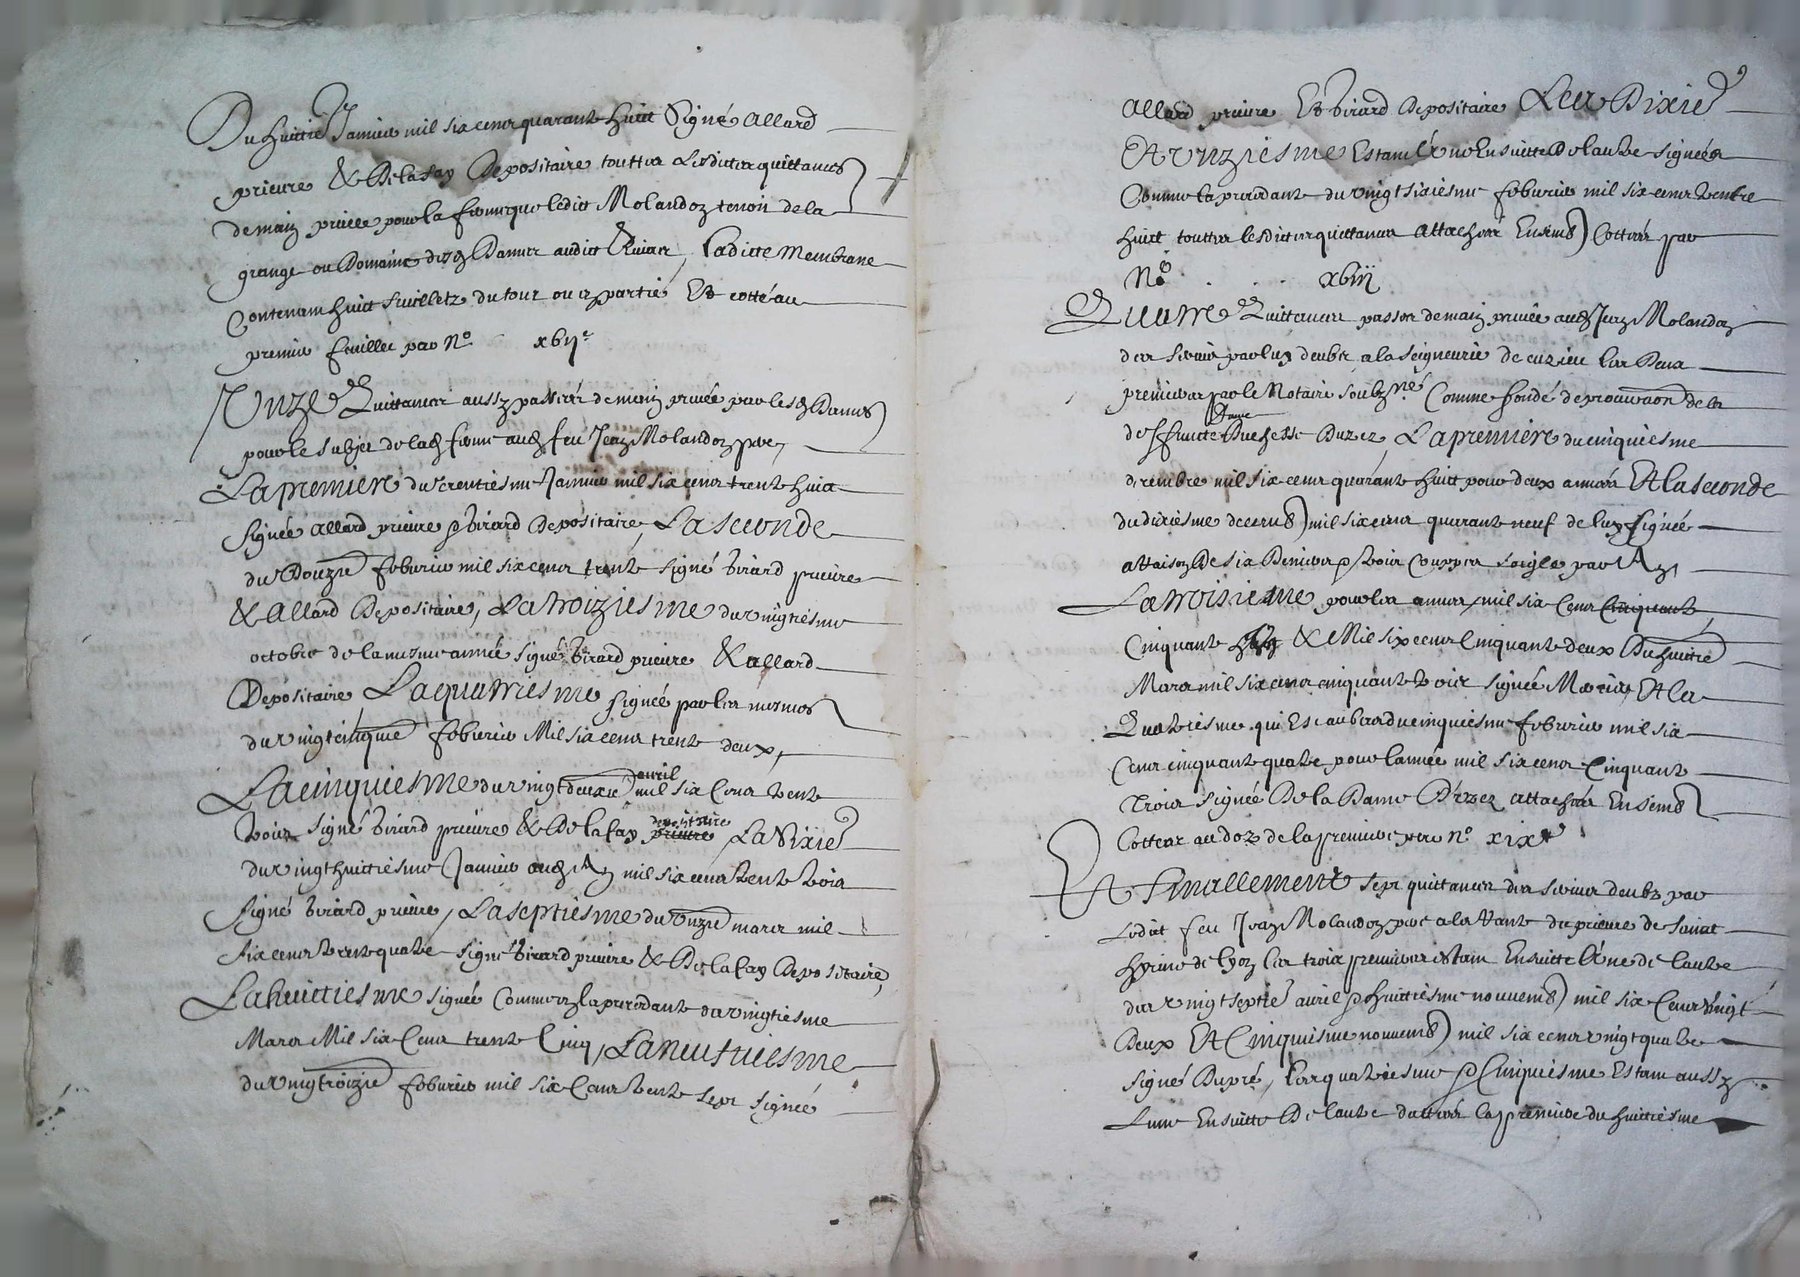 Du huittie Janvier mil six cens quarante huict Signé Allard
prieure & Delafay Depositaire touttes lesdictes quittances
de main privee pour la ferme que ledict Molandon tenoit de la
grange ou Domaine desd Dames audict, Ladicte Membrane
Contenant huict feuilletz du tout ou en partie Et cotté au
premier feuillet par No xvije
Unze Quittances aussy passées de main privée par lesd Dames
pour le subjet de lad ferme aud feu Jean Molandon pere,
La premiere du trentiesme Janvier mil six cens trente huict
Signée Allard prieure & Birard Depositaire, La seconde
du Douzie febvrier mil six cens trente signé Birard prieure
& Allard Depositaire, La troiziesme du vingtiesme
octobre de la mesme année signé Birard prieure & allard
Depositaire La quatriesme signée par les mesmes
du vingt cinquie febvrier Mil six cens trente deux,
La cinquiesme du vingt deuxie avril mil six Cens trente
trois signé Birard prieure & De la fay depositaire, La Sixie
du vingt huittiesme Janvier aud An mil six cens trente trois
Signé Birard prieure, La septiesme du Unzie mars mil
six cens trente quatre signé Birard prieure & De la fay Depositaire,
La huittiesme signée Comme la precedante du vingtiesme
Mars Mil six Cens trente Cinq, La neufviesme
du vingt troizie febvrier mil six Cens trente sept signée
Allard prieure Et Birard Depositaire Les Dixie
Et Unziesme Estant L'une En suitte De l'autre signées
Comme la precedante du vingt sixiesme febvrier mil six cens trente
huict touttes lesdictes quittances attachées Ensemb Cottées par
No xviij
Quatre Quittances passées de main privée aud Jean Molandon
des servis par luy deubz a la seigneurie de cuzieu les Deux
premieres par le Notaire soubz.né Comme fondé de procuraon de la
deffuncte Dame Duchesse Duzez, La premiere du cinquiesme
decembre mil six cens quarante huict pour deux années Et la seconde
du dixiesme decemb mil six cens quarante neuf de luy signée
a raison De six Deniers & trois Couppes soigle par An,
La troisieme pour les annees mil six Cens Cinquante
Cinquante & Mil six cens Cinquante deux Du huittie
Mars mil six cens cinquante trois signée, Et la
Quatriesme qui Est au bas du cinquiesme febvrier mil six
Cens cinquante quatre pour l'année mil six cens Cinquante
Trois signée De la Dame D'Uzez attachées Ensemb
Cottees au doz de la premiere par No xixe
Et Finallement sept quittances des servis deubz par
Ledict feu Jean Molandon pere a la Rante du prieure de Sainct
de Lyon les trois premieres estant En suitte L'une de l'autre
des vingt septie avril & huittiesme novemb mil six Cens vingt
Deux Et Cinquiesme novemb mil six cens vingt quatre
signé Dupré, Les quatriesme & Cinquiesme Estant aussy
L'une En suitte De l'autre dattées la premiere du huittiesme